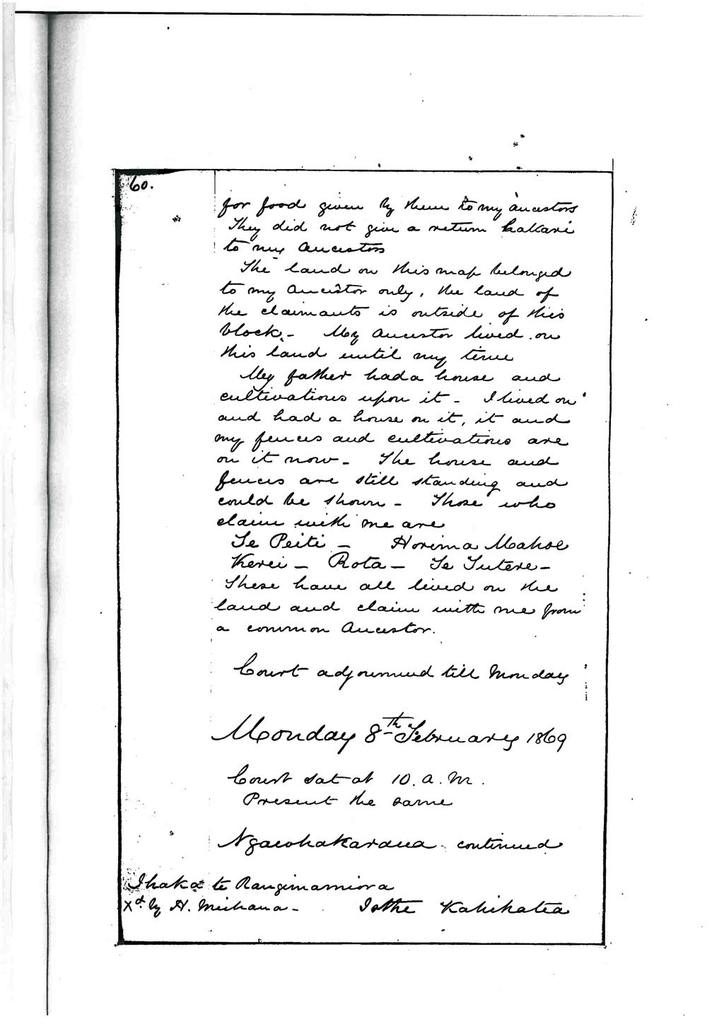 60.
for food given by them to my ancestors
They did not give a return hakari
to my Ancestors
The land on this map belonged
to my Ancestor only, the land of
the claimants is outside of this
block. - My Ancestor lived on
this land until my time
My father had a house and
cultivations upon it - I lived on
and had a house on it, it and
my fences and cultivations are
on it now - The house and
fences are still standing and
could be shown - Those who
claim with me are
Te Peiti - Horima Mahoe
Kerei - Rota - Te Tutere -
These have all lived on the
land and claim with me from
a common Ancestor.
Court adjourned till Monday
Monday 8th February 1869
Court sat at 10. a.m.
Present the same
Ngawhakaraua continued
Ihaka te Rangimamiora
Xd. by H. - Is the Kahikatea